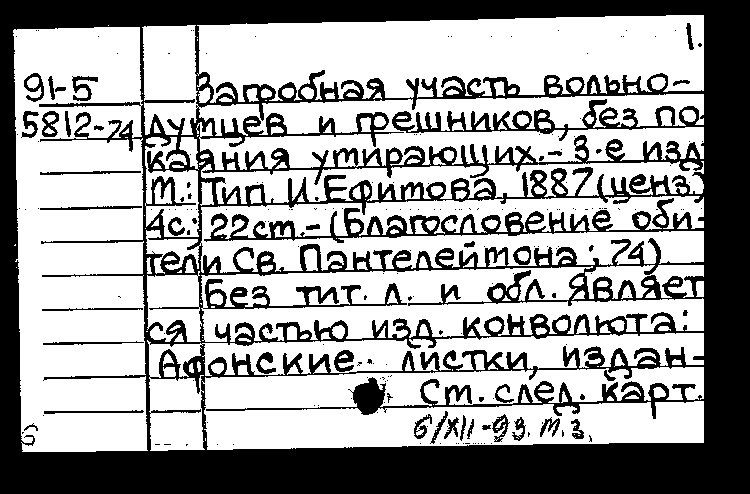 1.
91-5 Загробная участь вольно-
5812-74 думцев и грешников, без по-
каяния умирающих.- 3-е изд
М.: Тип. И.Ефимова, 1887(ценз.)
4с.; 22см.-(Благословение оби-
тели Св. Пантелеймона; 74)
Без тит. л. и обл. Являет
ся частью изд. конволюта:
Афонские.. листки, издан-
См. след. карт.
6/XII-93. М.З.